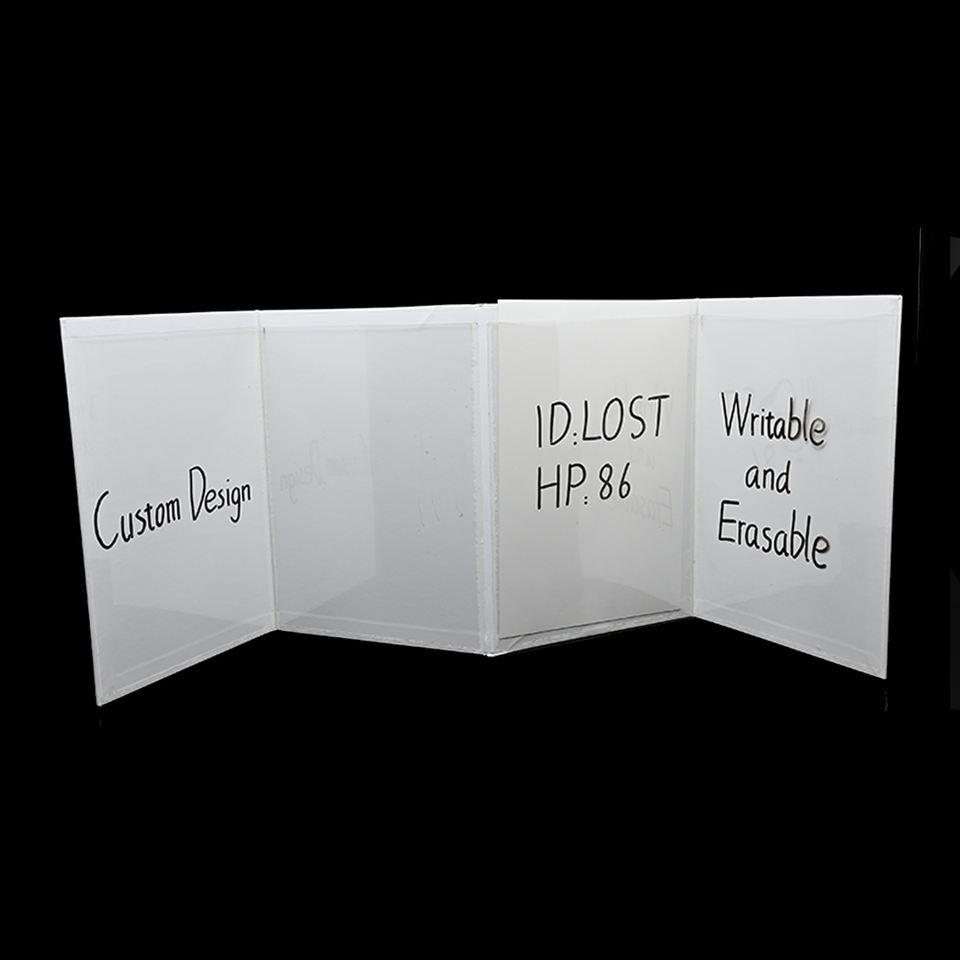 Custom Design
ID:LOST
HP: 86
Writable
and
Erasable